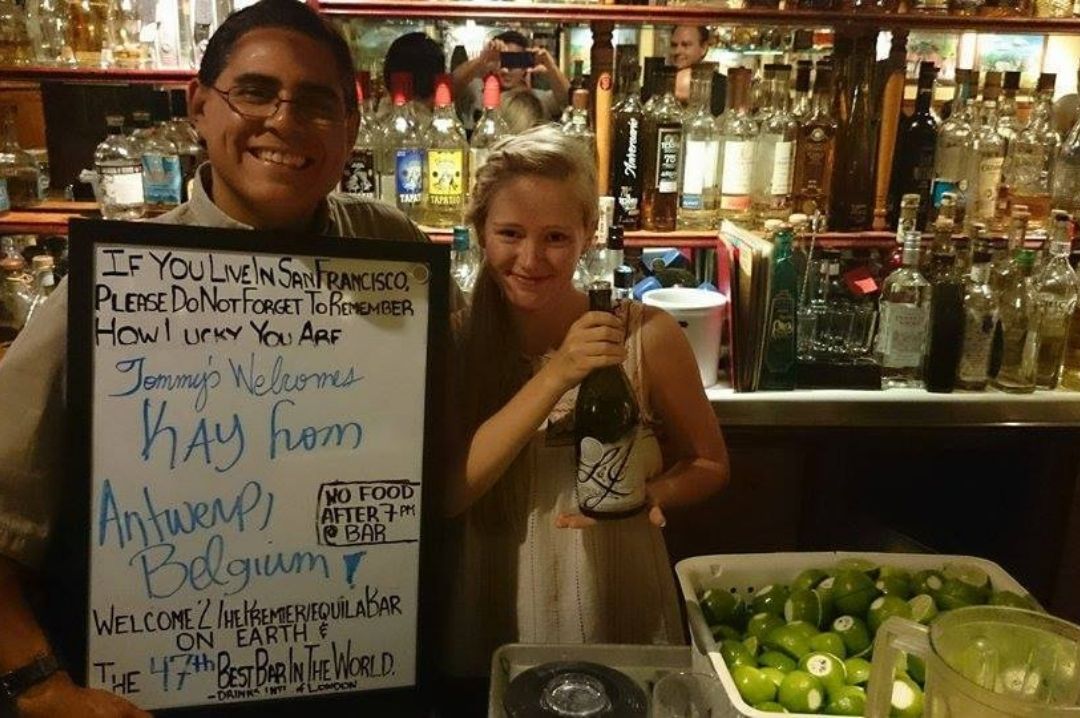 IF YOU LIVE IN SAN FRANCISCO,
PLEASE DO NOT FORGET TO REMEMBER
HOW LUCKY YOU ARE
Tommy's Welcomes
KAY from
Antwerp,
Belgium!
NO FOOD
AFTER 7 PM
@ BAR
WELCOME 2 THE PREMIER TEQUILA BAR
ON EARTH &
THE 47th BEST BAR IN THE WORLD.
- DRINKS INT'L OF LONDON
TAPATIO